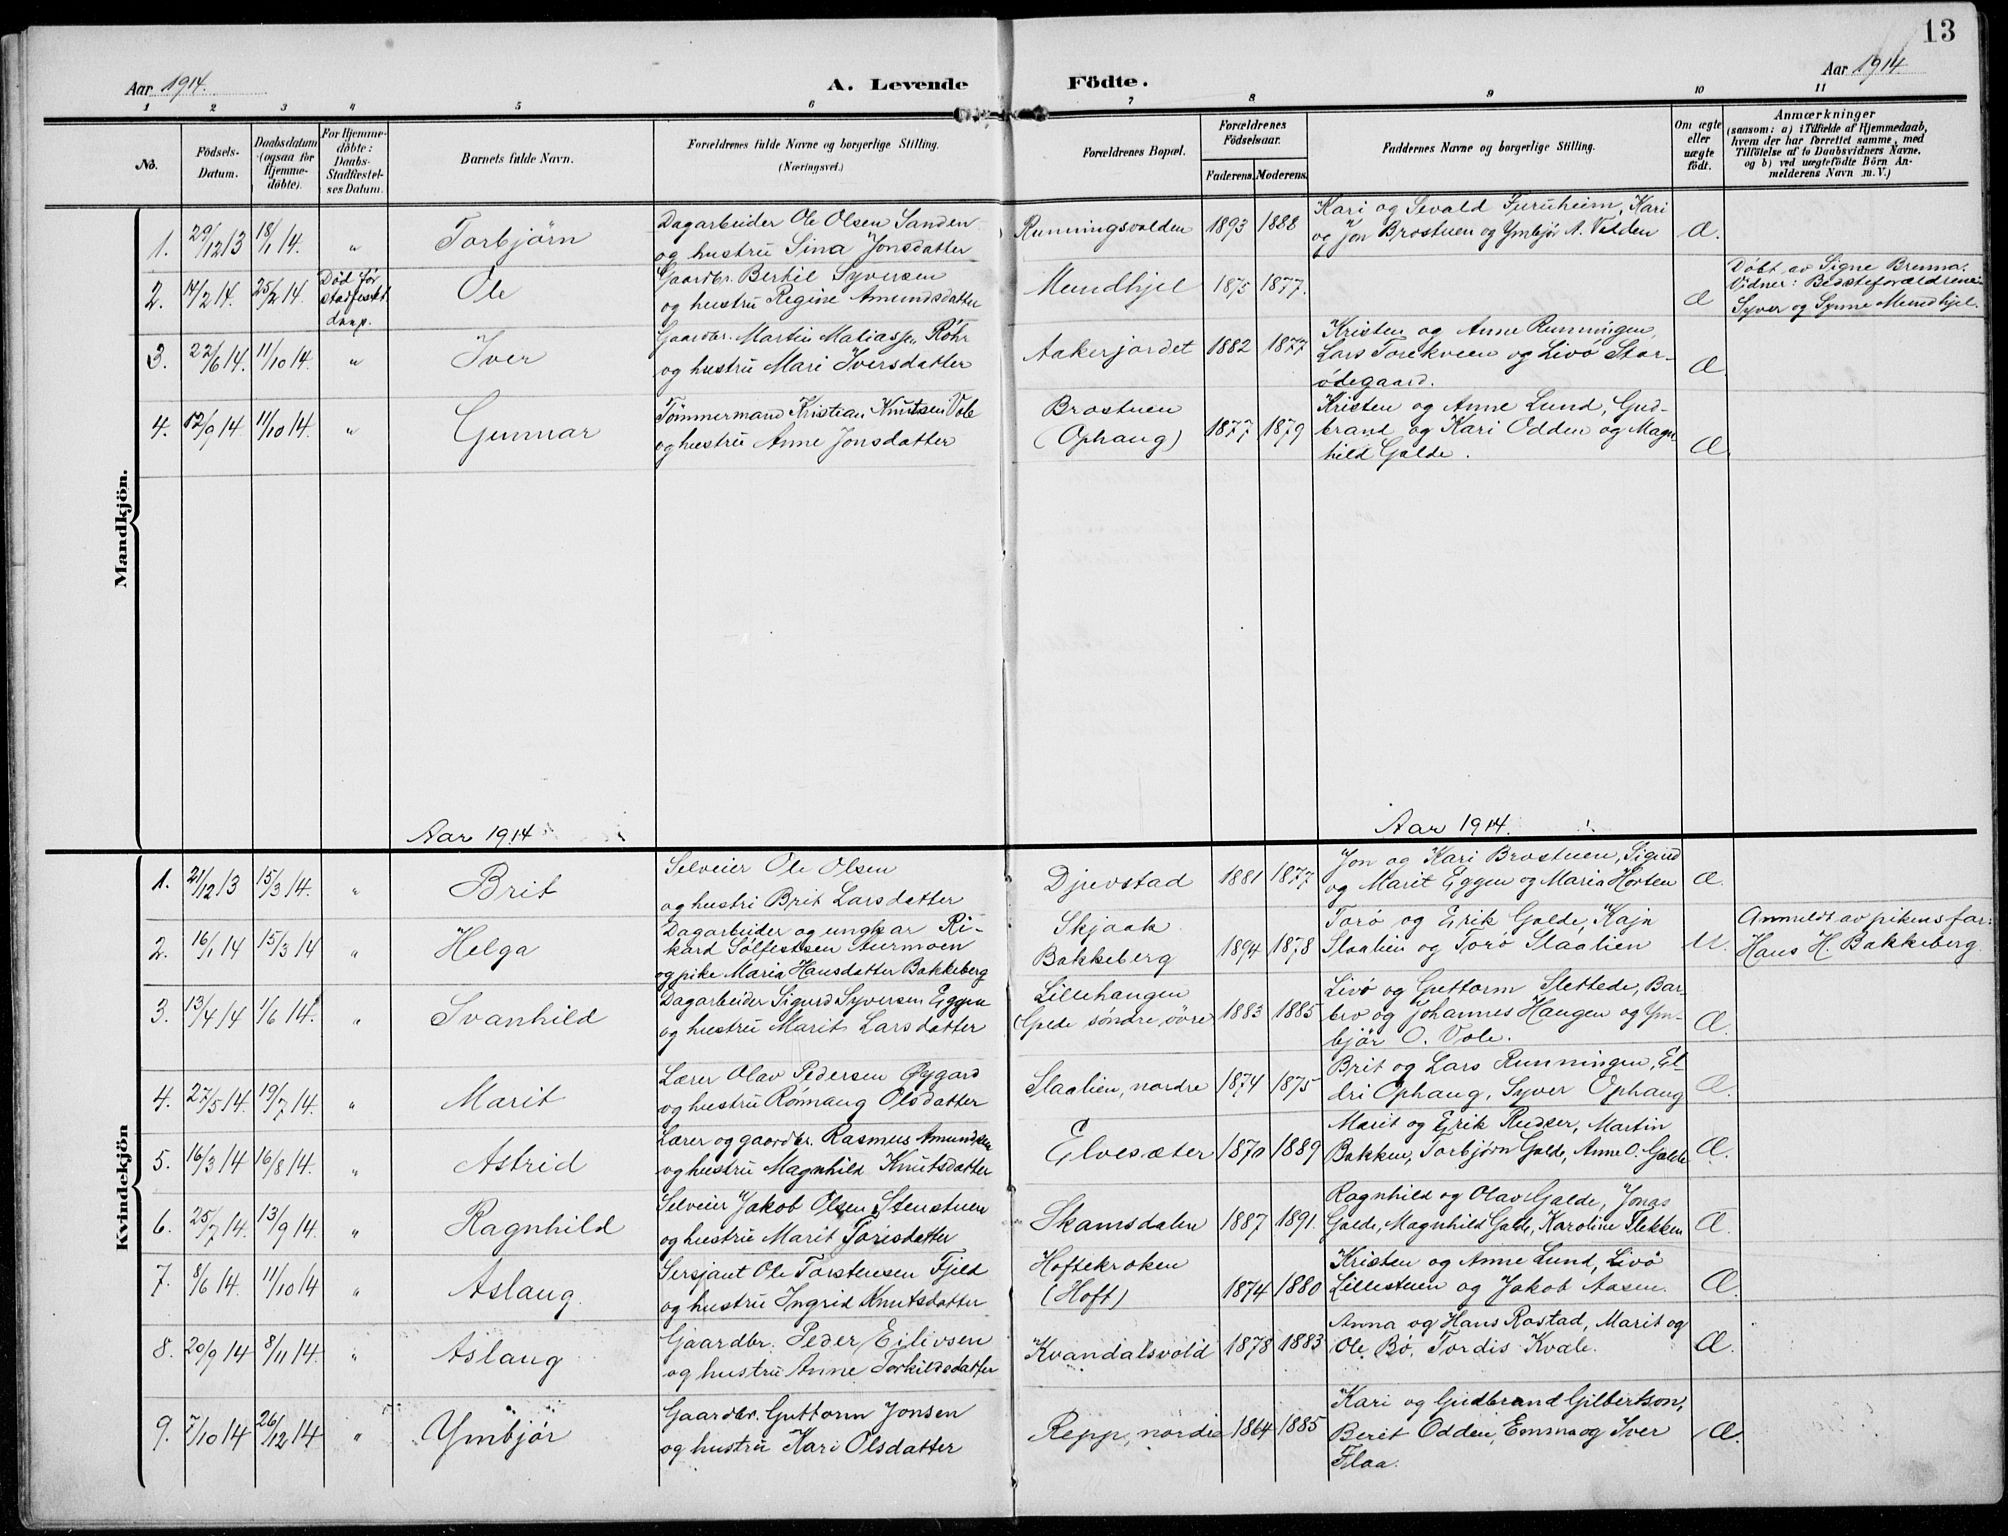 13
Aar 1914. A. Levende Födte. Aar 1914.
1 2 3 4 5 6 7 8 9 10 11
No.
Födsels-Datum.
Daabsdatum (ogsaa for Hjemme-döbte).
For Hjemme-döbte: Daabs-Stadfæstel-ses Datum.
Barnets fulde Navn.
Forældrenes fulde Navne og borgerlige Stilling.
(Næringsvei.)
Forældrenes Bopæl.
Forældrenes Födselsaar.
Faderens. Moderens.
Faddernes Navne og borgerlige Stilling.
Om ægte eller uægte födt.
Anmærkninger
(saasom: a) i Tilfælde af Hjemmedaab,
hvem der har forrettet samme, med
Tilföielse af to Daabsvidners Navne,
og b) ved uægtefödte Börn An-
melderens Navn m. V.)
Mandkjön.
1. 29/12 13 18/1 14. " Torbjörn Dagarbeider Ole Olsen Sanden
og hustru Sina Jonsdatter Runningsvolden 1893 1888 Kari og Sevald Furuheim, Kari
og Jon Brostuen og Ymbjör A. Vidden Æ.
2. 14/2 14. 25/2 14. Död før stadfæst. daap. Ole Gaardbr. Berhil Syversen
og hustru Regine Amundsdatter Mundhjel 1875 1877. Æ Döbt av Signe Brenna.
Vidner: Bedsteforældrene
Syver og Synne Mundhjel.
3. 22/6 14. 11/10 14. " Iver Gaardbr. Martin Matiass. Röhr
og hustru Mari Iversdatter Aakerjordet 1882 1877 Kristen og Anne Runningen,
Lars Torekveen og Livö Stor-
ödegaard. Æ
4. 12/9 14 11/10 14. " Gunnar Tömmermand Kristian Knutsen Vole
og hustru Anne Jonsdatter Brostuen
(Ophaug) 1877 1879 Kristen og Anne Lund, Gud-
brand og Kari Odden og Magn
hild Galde. Æ
Aar 1914 Aar 1914.
Kvindekjön
1. 21/12 13 15/3 14. " Brit Selveier Ole Olsen
og hustri Brit Larsdatter Djupstad 1881 1877 Jon og Kari Brostuen, Sigurd
og Marit Eggen og Maria Horten Æ
2. 16/1 14 15/3 14 " Helga Dagarbeider og ungkar Ri-
kard Sølfestsen Aurmoen
og pike Maria Hansdatter Bakkeberg Skjaak
Bakkeberg 1894 1878 Torö og Erik Galde, Kaja
Slaalien og Torö Slaalien U. Anmeldt av pikens far:
Hans H. Bakkeberg.
3. 13/4 14 1/6 14. " Svanhild Dagarbeider Sigurd Syversen Eggen
og hustru Marit Larsdatter Lillehaugen
(Gjede söndre, övre 1883 1885 Livö og Guttorm Slettede, Bar-
bro og Johannes Haugen og Ym-
björ O. Vole. Æ.
4. 27/5 14. 19/7 14. " Marit Lærer Olav Pedersen Øygard
og hustru Rönnaug Olsdatter Slaalien, nordre 1874 1875 Brit og Lars Runningen, El-
dri Ophaug, Syver Ophaug Æ.
5. 16/3 14 16/8 14. " Astrid Lærer og gaardbr. Rasmus Amundsen
og hustru Magnhild Knutsdatter Elvesæter 1870 1889 Marit og Erik Rudser, Martin
Bakken, Torbjörn Galde, Anne O. Galde Æ.
6. 25/7 14. 13/9 14. " Ragnhild Selveier Jakob Olsen Stenstuen
og hustru Marit Torisdatter Skamsdalen 1887 1891. Ragnhild og Olav Galde, Jonas
Galde, Magnhild Galde, Karoline Flekken Æ.
7. 8/6 14. 11/10 14 " Aslaug Sersjant Ole Torstensen Fjeld
og hustru Ingrid Knutsdatter Hoftekroken
(Hoft) 1874 1880 Kristen og Anne Lund, Livö
Lillestuen og Jakob Aasen. Æ.
8. 20/9 14 8/11 14. " Aslaug Gaardbr. Peder Eilivsen
og hustru Anne Torkildsdatter Kvandalsvold 1878 1883 Anna og Hans Rostad, Marit og
Ole Bö, Tordis Kvale. Æ.
9. 7/10 14 26/12 14 " Ymbjör Gaardbr. Guttorm Jonsen
og hustru Kari Olsdatter Repp, nordre 1864 1885 Kari og Gudbrand Gilbertson,
Berit Odden, Emma og Iver
Flaa. Æ.